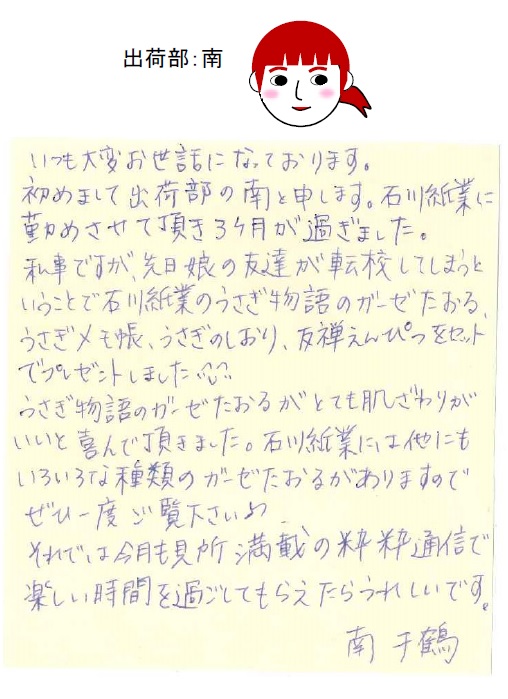 出荷部：南
いつも大変お世話になっております。
初めまして出荷部の南と申します。石川紙業に
勤めさせて頂き3ヶ月が過ぎました。
私事ですが、先日娘の友達が転校してしまうと
いうことで石川紙業のうさぎ物語のガーゼたおる、
うさぎメモ帳、うさぎのしおり、友禅えんぴつをセット
でプレゼントしました
うさぎ物語のガーゼたおるがとても肌ざわりが
いいと喜んで頂きました。石川紙業には他にも
いろいろな種類のガーゼたおるがありますので
ぜひ一度ご覧下さい
それでは今月も見所満載の粋粋通信で
楽しい時間を過ごしてもらえたらうれしいです。
南 千鶴